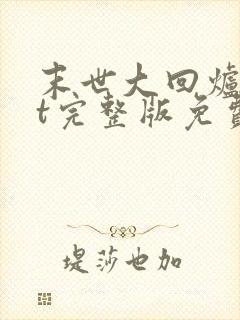 末世大回爐
t完整版免費
堤莎也加